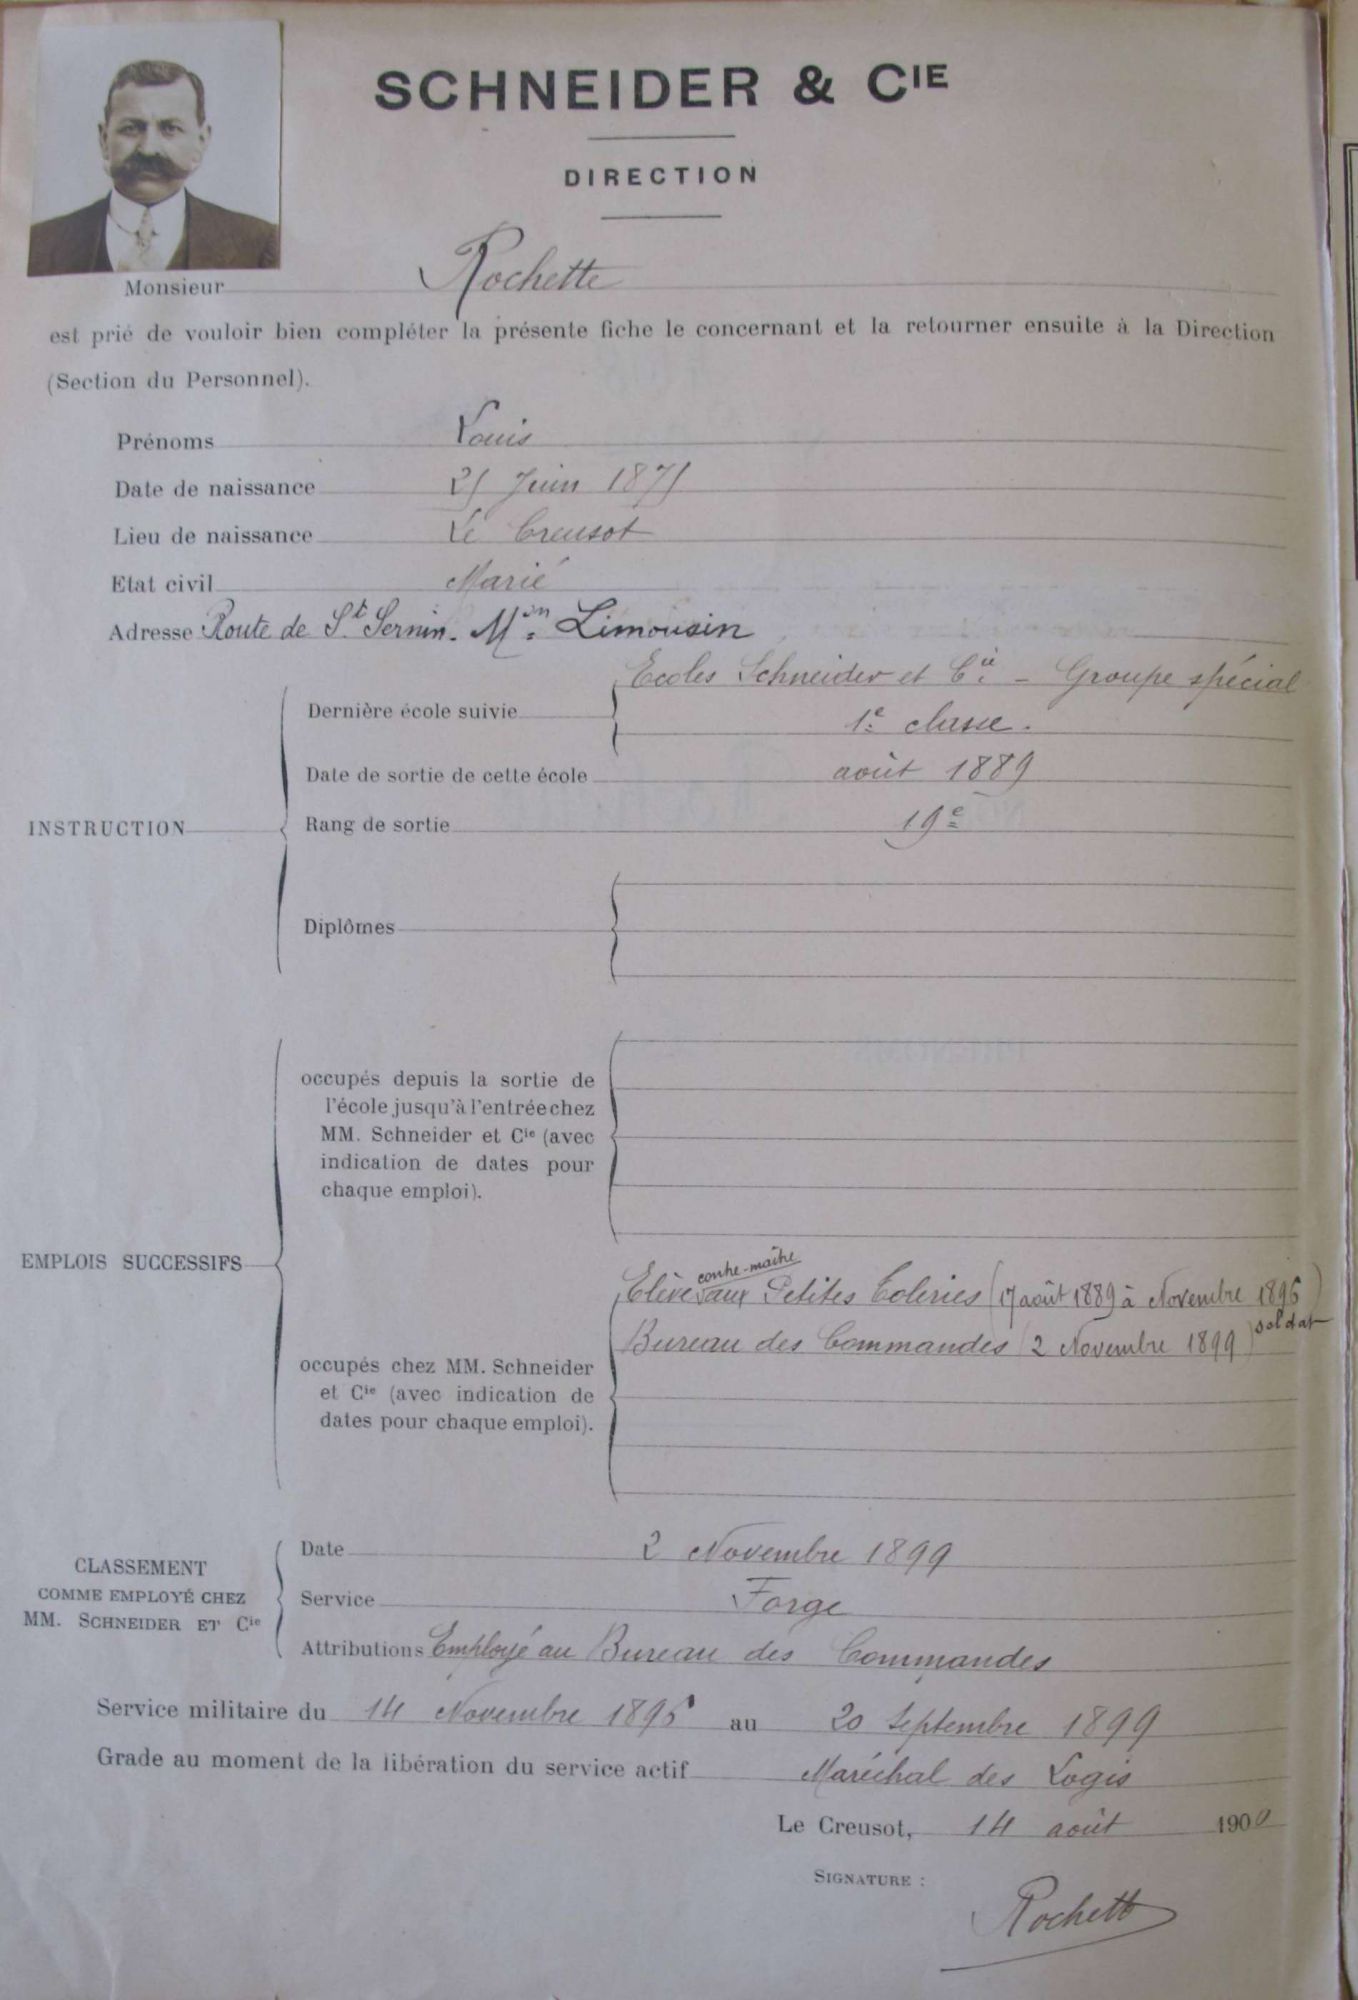 SCHNEIDER & CIE
DIRECTION
Monsieur Rochette
est prié de vouloir bien compléter la présente fiche le concernant et la retourner ensuite à la Direction
(Section du Personnel).
Prénoms Louis
Date de naissance 25 Juin 1875
Lieu de naissance Le Creusot
Etat civil Marié
Adresse Route de St Sernin. Mon Limousin
INSTRUCTION
Dernière école suivie Ecoles Schneider et Cie - Groupe spécial
1e classe.
Date de sortie de cette école août 1889
Rang de sortie 19e
Diplômes
EMPLOIS SUCCESSIFS
occupés depuis la sortie de
l'école jusqu'à l'entrée chez
MM. Schneider et Cie (avec
indication de dates pour
chaque emploi).
occupés chez MM. Schneider
et Cie (avec indication de
dates pour chaque emploi).
contre-maître
Elève aux Petites Toleries (17 août 1889 à Novembre 1896)
soldat
Bureau des Commandes (2 Novembre 1899)
CLASSEMENT
COMME EMPLOYÉ CHEZ
MM. SCHNEIDER ET Cie
Date 2 Novembre 1899
Service Forge
Attributions Employé au Bureau des Commandes
Service militaire du 14 Novembre 1896 au 20 Septembre 1899
Grade au moment de la libération du service actif Maréchal des Logis
Le Creusot, 14 août 1900
SIGNATURE :
Rochette